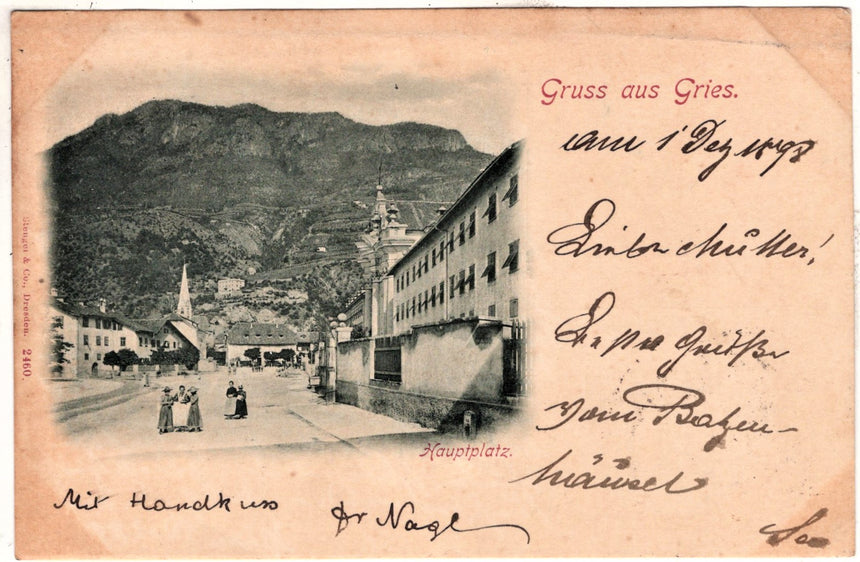 Gruss aus Gries.
am 1 Dez 1898
Liebe Mutter!
Beste Grüße
vom Batzen-
häusel
Hauptplatz.
Mit Handkuss Dr Nagl
Stengel & Co., Dresden. 2460.